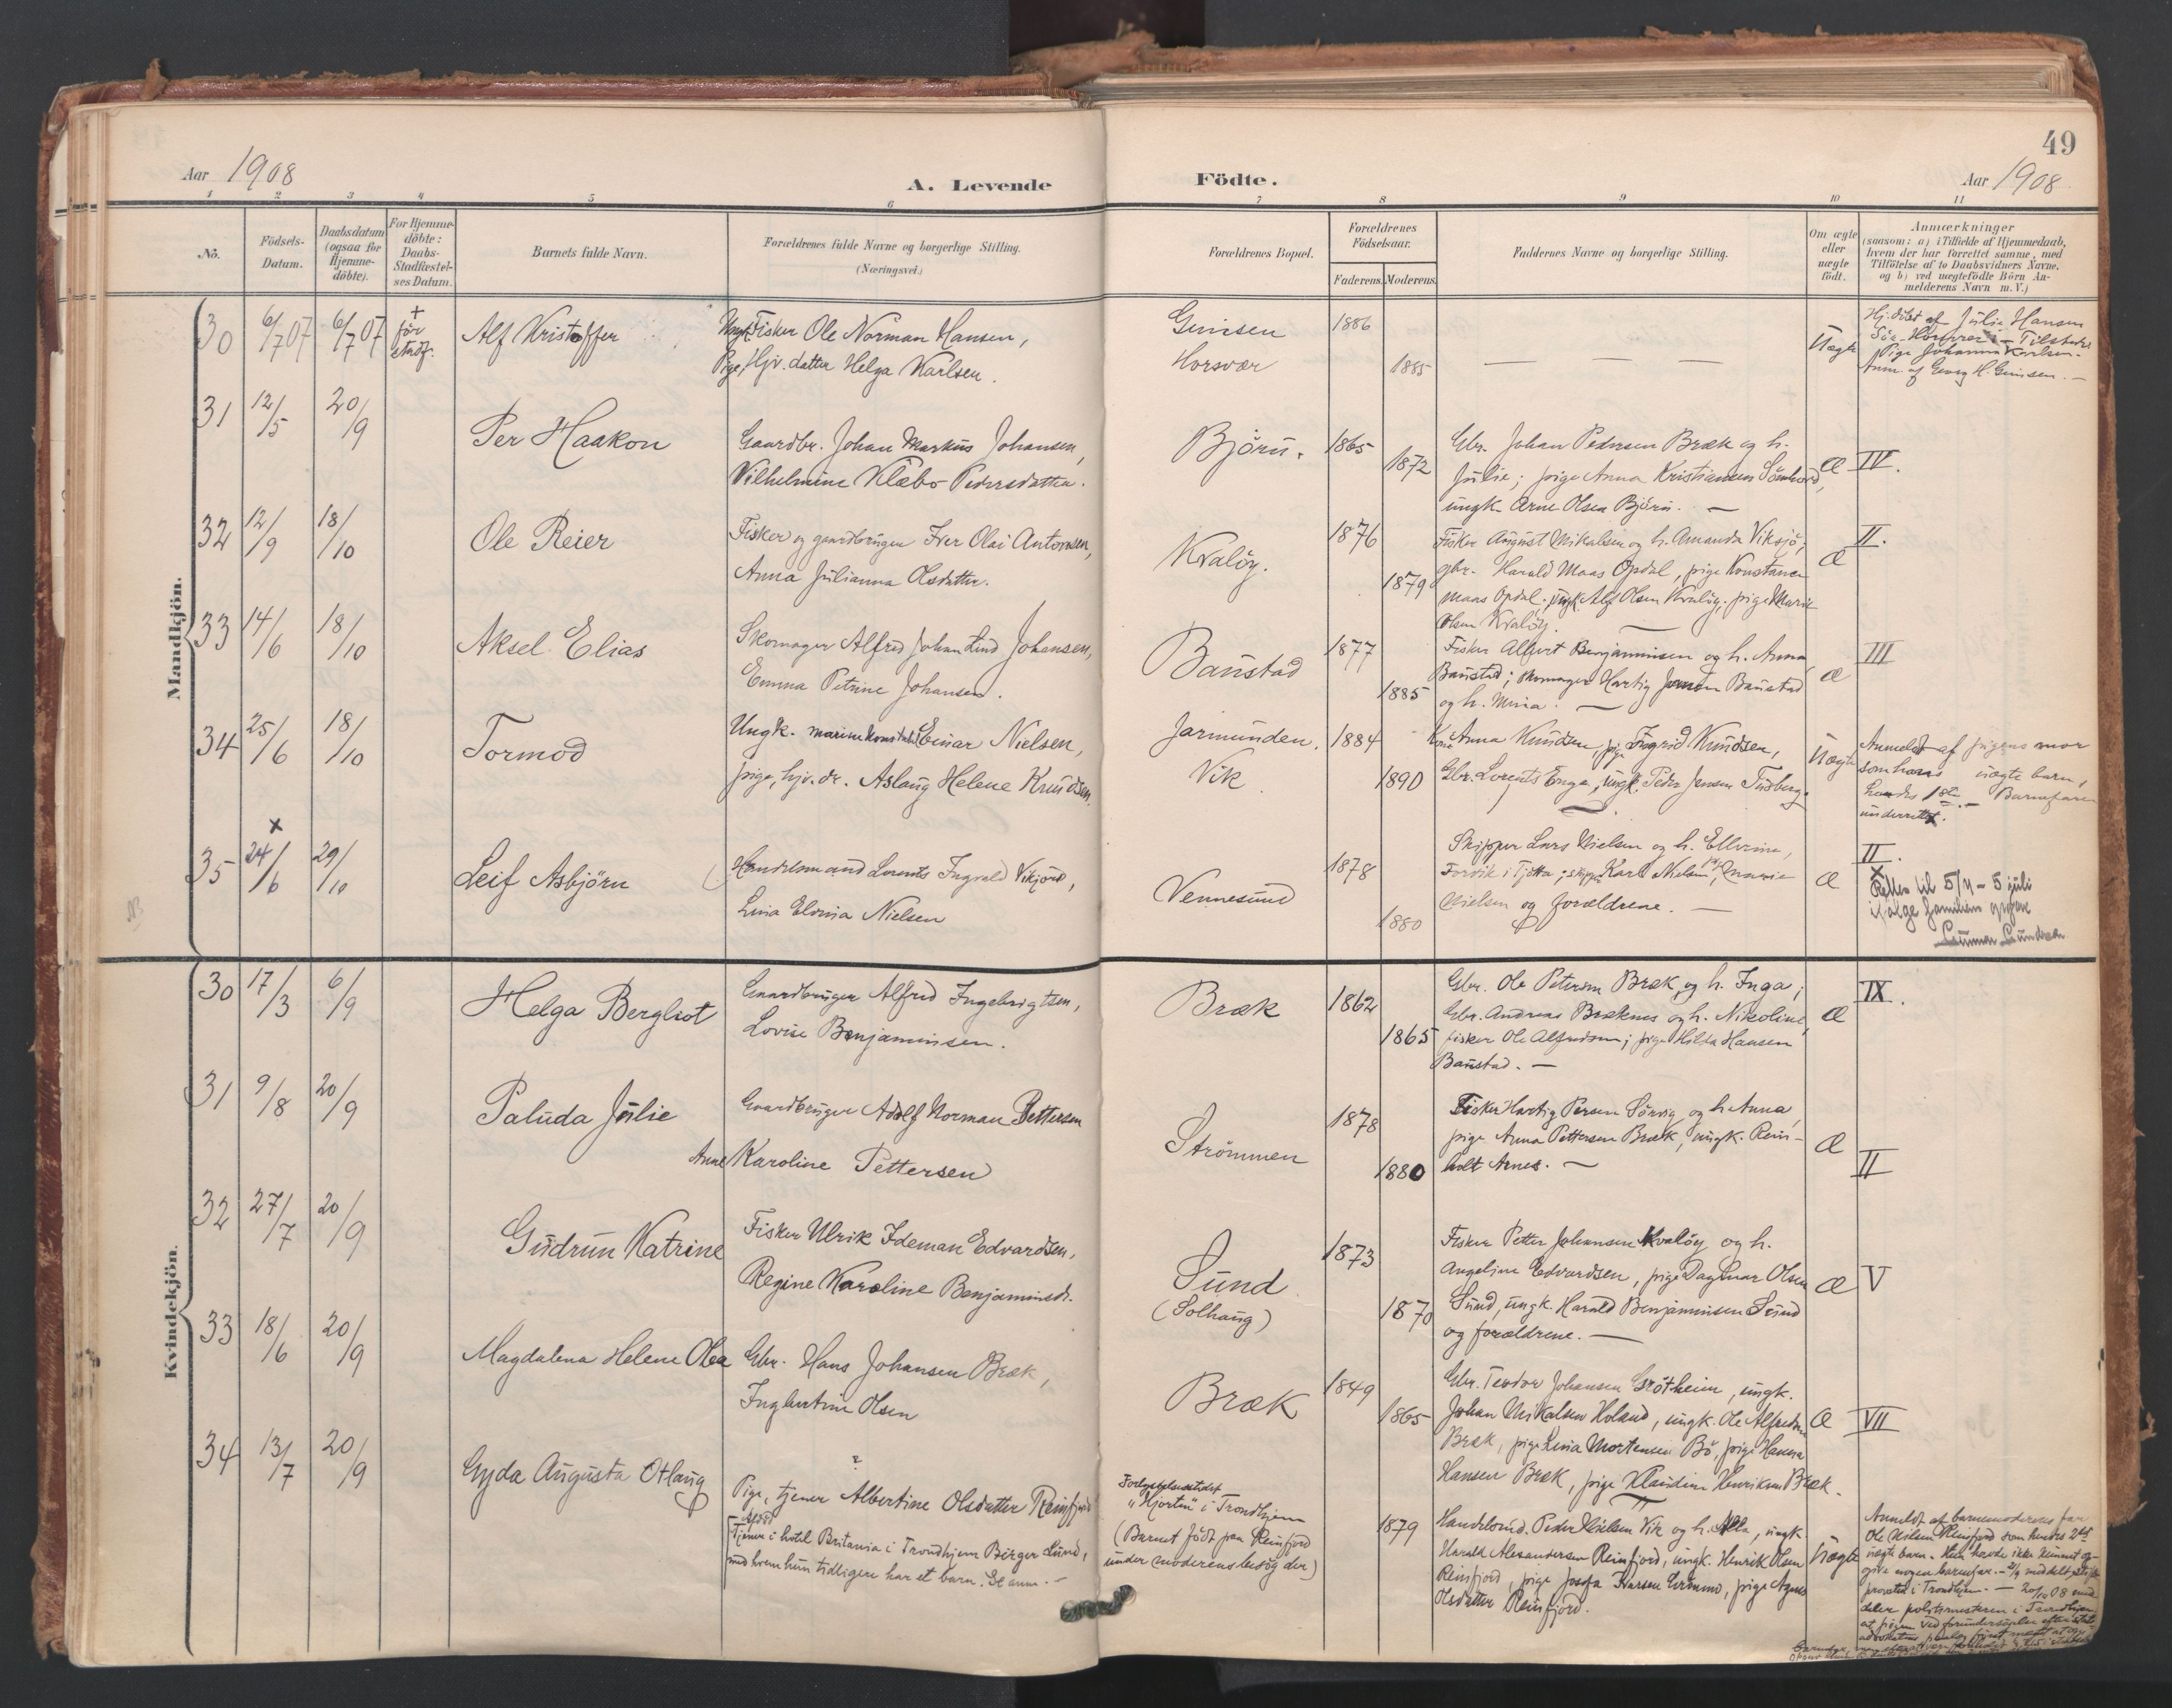 49
Aar 1908
A. Levende
Födte.
Aar 1908
1 2 3 4 5 6 7 8 9 10 11
No.
Födsels-
Datum.
Daabsdatum
(ogsaa for
Hjemme-
döbte).
For Hjemme-
döbte:
Daabs-
Stadfæstel-
ses Datum.
Barnets fulde Navn.
Forældrenes fulde Navne og borgerlige Stilling.
(Næringsvei.)
Forældrenes Bopæl.
Forældrenes
Födselsaar.
Faderens. Moderens.
Faddernes Navne og borgerlige Stilling.
Om ægte
eller
uægte
födt.
Anmærkninger
(saasom: a) i Tilfælde af Hjemmedaab,
hvem der har forrettet samme, med
Tilföielse af to Daabsvidners Navne,
og b) ved uægtefödte Börn An-
melderens Navn m. V.)
Mandkjön.
30 6/7 07 6/7 07
+
för
stadf.
Alf Kristoffer
Ungk. Fisker Ole Norman Hansen,
Pige, Hjv. datter Helga Karlsen.
Gimsen
Horsvær
1886
1885
— — —
Uægte
Hj. döbt af Julie Hansen
Pige Johanna Karlsen.
Anm. af Georg H. Gimsen. —
31 12/5 20/9
Per Haakon
Gaardbr. Johan Markus Johansen,
Vilhelmine Klæbo Pedersdatter.
Björn.
1865
1872
Gbr. Johan Pedersen Bræk og h.
Julie; pige Anna Kristiansen Sömhovd,
ungk. Arne Olsen Björn. —
Æ
IV.
32 12/9 18/10
Ole Reier
Fisker og gaardbruger Iver Olai Antonsen,
Anna Julianna Olsdatter.
Kvalöy.
1876
1879
Fisker August Mikalsen og h. Amanda Viksjö;
gbr. Harald Maas Opdal, pige Konstance
Maas Opdal; ungk. Alf Olsen Kvalöy, pige Marie
Olsen Kvalöy. —
Æ
II.
33 14/6 18/10
Aksel Elias
Skomager Alfred Johan Lind Johansen,
Emma Petrine Johansen.
Baustad
1877
1885
Fisker Albert Benjaminsen og h. Anna
Baustad; skomager Hartig Jensen Baustad
og h. Mina. —
Æ
III
34 25/6 18/10
Tormod
Ungk. marinekonstabel Einar Nielsen,
pige, hjv. dr. Aslaug Helene Knudsen.
Jarmunden.
Vik
1884
1890
Kone Anna Knudsen, pige Ingrid Knudsen,
Gbr. Lorents Enga, ungk. Peder Jensen Tidsberg.
Uægte
Anmeldt af pigens mor
som hans uægte barn,
hendes 1ste. — Barnefaren
underrettet.
35
×
24/6 29/10
Leif Asbjörn
Handelsmand Lorents Ingvald Vikjord,
Lina Elvina Nielsen
Vennesund
1878
1880
Skipper Lars Nielsen og h. Ellvina,
Forvik i Tjötta; skipper Karl Nielsen, pige Marie
Nielsen og forældrene. —
Æ
II.
×
Rettes til 5/7 – 5 juli
ifölge familiens opgave
Kvindekjön.
30 17/3 6/9
Helga Bergliot
Gaardbruger Alfred Ingebrigtsen,
Lovise Benjaminsen.
Bræk
1862
1865
Gbr. Ole Petersen Bræk og h. Inga;
Gbr. Andreas Bræknes og h. Nikoline,
fisker Ole Alfredsen; pige Hilda Hansen
Baustad. —
Æ
IX.
31 9/8 20/9
Paluda Julie
Gaardbruger Adolf Norman Pettersen
Anne Karoline Pettersen
Strömmen
1878
1880
Fisker Hartig Persen Sörvig og h. Anna,
pige Anna Pettersen Bræk, ungk. Rein-
holt Arnes. —
Æ
II
32 27/7 20/9
Gudrun Katrine
Fisker Ulrik Ideman Edvardsen,
Regine Karoline Benjaminsdr.
Sund
(Solhaug)
1873
1870
Fisker Petter Johansen Kvalöy og h.
Angeline Edvardsen, pige Dagmar Olsen
Sund, ungk. Harald Benjaminsen Sund
og forældrene. —
Æ
V
33 18/6 20/9
Magdalena Helene Olea
Gbr. Hans Johansen Bræk,
Ingbertine Olsen
Bræk
1849
1865
Gbr. Teodor Johansen Grötheim, ungk.
Johan Mikalsen Holand, ungk. Ole Alfredsen
Bræk, pige Lina Mortensen Bö, pige Hanna
Hansen Bræk, pige Klaudine Henriksen Bræk.
Æ
VII
34 13/7 20/9
Gyda Augusta Otlaug
?
Pige, tjener Albertine Olsdatter Reinfjord
Tjener i hotel Britania i Trondhjem Birger Lund,
med hvem hun tidligere har et barn. Se anm. —
"Hjorten" i Trondhjem
(Barnet födt paa Reinfjord
under moderens besög der)
1879
Handelsmd. Peder Nielsen Vik og h. Alla, ungk.
Harald Alexandersen Reinfjord, ungk. Henrik Olsen
Reinfjord, pige Josefa Iversen Grimmo, pige Agnes
Olsdatter Reinfjord.
Uægte
Anmeldt af barnemoderens far
Ole Nilsen Reinfjord som hendes 2det
uægte barn. Hun havde ikke kunnet op-
give nogen barnefar. –
provsten i Trondhjem. — 20/10 08 med-
deler politimesteren i Trondhjem